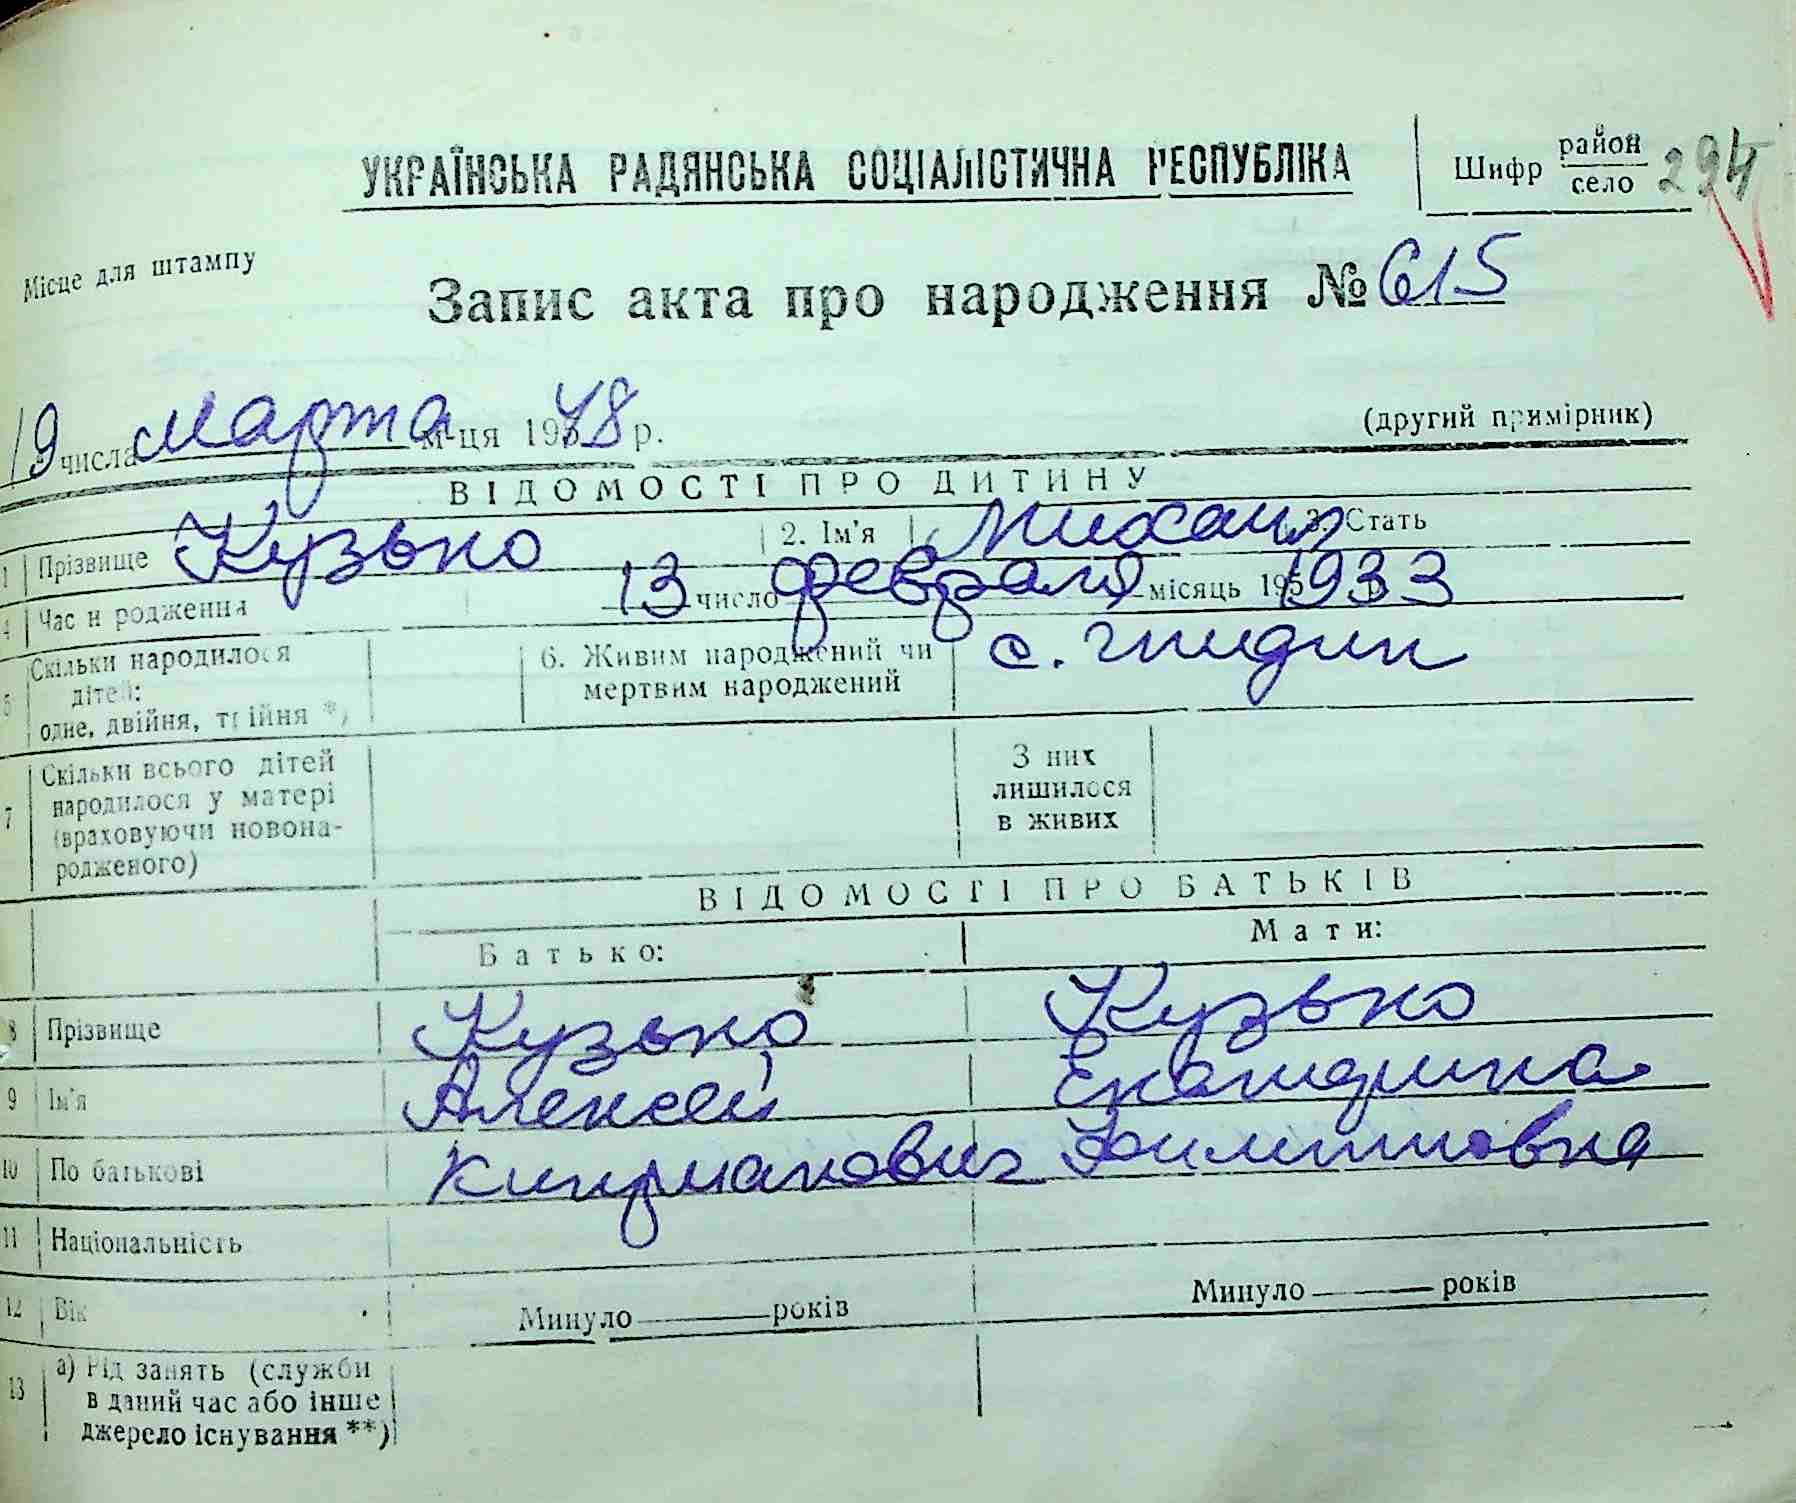 УКРАЇНСЬКА РАДЯНСЬКА СОЦІАЛІСТИЧНА РЕСПУБЛІКА
Шифр район
село 294
Місце для штампу
Запис акта про народження № 615
19 числа марта м-ця 1948 р.
(другий примірник)
ВІДОМОСТІ ПРО ДИТИНУ
1 Прізвище Кузько 2. Ім'я Михаил 3. Стать
4 Час н родження 13 число февраля місяць 195 1933
5 Скільки народилося дітей: одне, двійня, трійня *)
6. Живим народжений чи мертвим народжений
с. Гнидин
7 Скільки всього дітей народилося у матері (враховуючи новонародженого)
З них лишилося в живих
ВІДОМОСТІ ПРО БАТЬКІВ
Батько: Мати:
8 Прізвище Кузько Кузько
9 Ім'я Алексей Екатерина
10 По батькові Киприанович Филипповна
11 Національність
12 Вік Минуло років Минуло років
13 а) Рід занять (служби в даний час або інше джерело існування **)